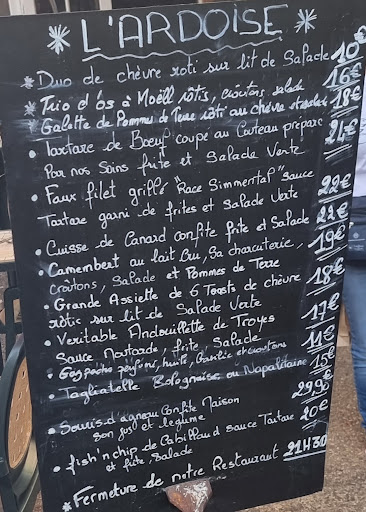 * L'ARDOISE *
* Duo de chèvre roti sur lit de Salade 10€
* Trio d'os à Moëll rôtis, croutons, salade 16€
* Galette de Pomme de Terre rôti au chèvre et salade 18€
• Tartare de Boeuf coupé au Couteau préparé 24€
Par nos Soins frite et Salade Verte
• Faux filet grillé "Race Simmental" sauce 22€
Tartare garni de frites et Salade Verte
• Cuisse de Canard Confite frite et Salade 22€
• Camembert au lait Cru, Sa charcuterie, 19€
croutons, Salade et Pommes de Terre
• Grande Assiette de 6 Toasts de chèvre 18€
rôtic sur lit de Salade Verte
• Veritable Andouillette de Troyes 17€
Sauce Moutarde, frite, Salade
• Gaspacho parfumé, huile, Basilic et croutons 11€
• Tagliatelle Bolognaise ou Napolitaine 15€
• Souris d'agneau Confite Maison 29,90€
son jus et légume
• fish'n chip de Cabillaud sauce Tartare 20€
et frite, Salade
* Fermeture de notre Restaurant 21H30